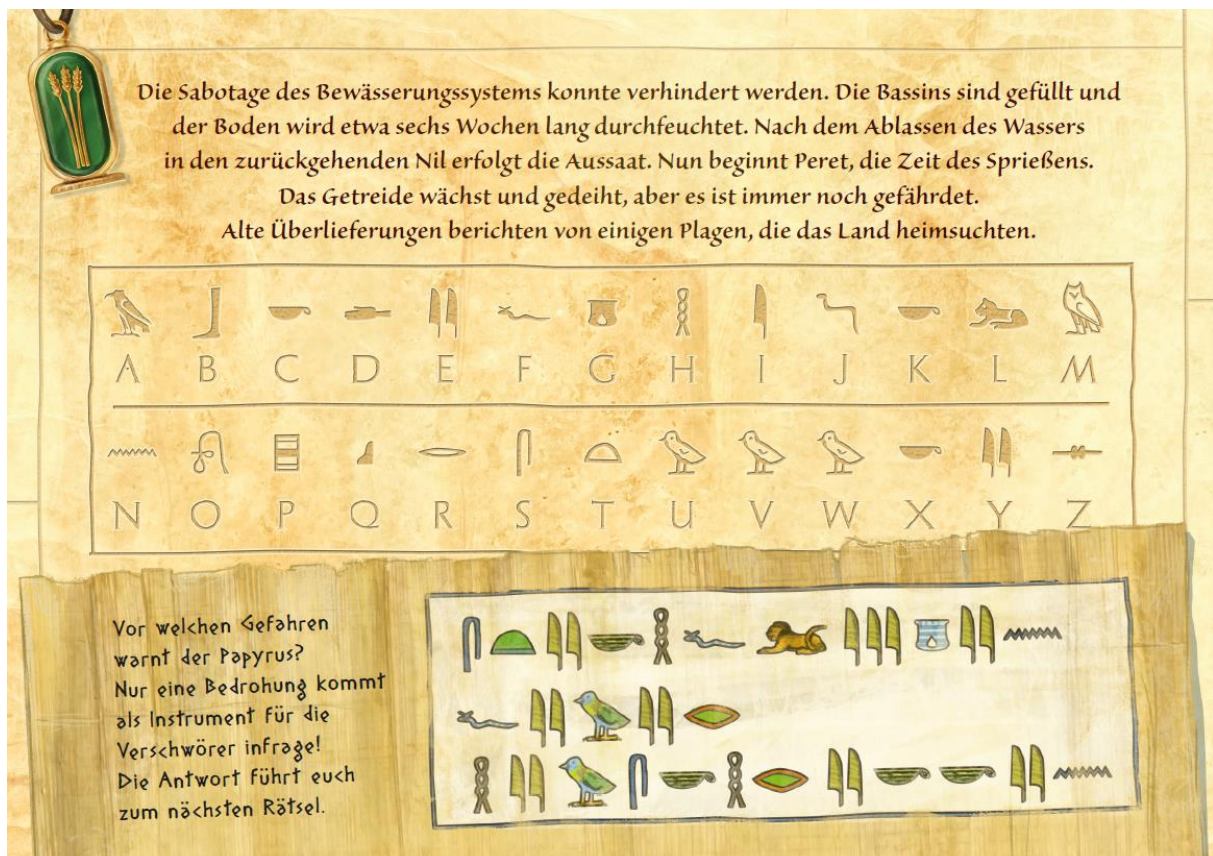 Die Sabotage des Bewässerungssystems konnte verhindert werden. Die Bassins sind gefüllt und
der Boden wird etwa sechs Wochen lang durchfeuchtet. Nach dem Ablassen des Wassers
in den zurückgehenden Nil erfolgt die Aussaat. Nun beginnt Peret, die Zeit des Sprießens.
Das Getreide wächst und gedeiht, aber es ist immer noch gefährdet.
Alte Überlieferungen berichten von einigen Plagen, die das Land heimsuchten.
A B C D E F G H I J K L M
N O P Q R S T U V W X Y Z
Vor welchen Gefahren
warnt der Papyrus?
Nur eine Bedrohung kommt
als Instrument für die
Verschwörer infrage!
Die Antwort führt euch
zum nächsten Rätsel.